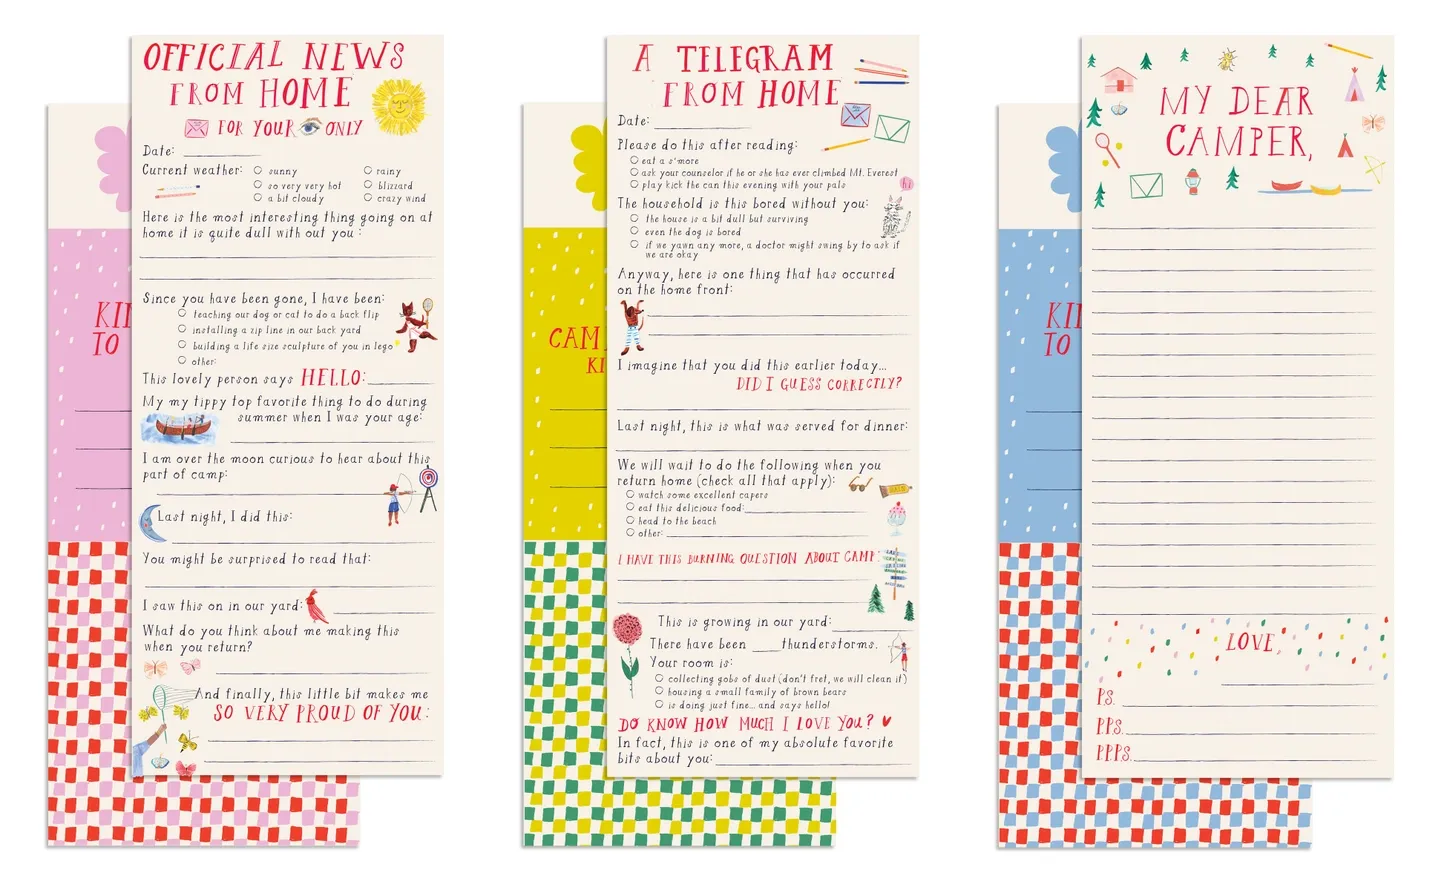 OFFICIAL NEWS
FROM HOME
FOR YOUR ONLY
Date:
Current weather:
sunny
so very very hot
a bit cloudy
rainy
blizzard
crazy wind
Here is the most interesting thing going on at
home it is quite dull with out you :
Since you have been gone, I have been:
teaching our dog or cat to do a back flip
installing a zip line in our back yard
building a life size sculpture of you in lego
other:
This lovely person says HELLO:
My my tippy top favorite thing to do during
summer when I was your age:
I am over the moon curious to hear about this
part of camp:
Last night, I did this:
You might be surprised to read that:
I saw this on in our yard:
What do you think about me making this
when you return?
And finally, this little bit makes me
SO VERY PROUD OF YOU:
TO
A TELEGRAM
FROM HOME
Date:
Please do this after reading:
eat a s'more
ask your counselor if he or she has ever climbed Mt. Everest
play kick the can this evening with your pals
hi
The household is this bored without you:
the house is a bit dull but surviving
even the dog is bored
if we yawn any more, a doctor might swing by to ask if
we are okay
Anyway, here is one thing that has occurred
on the home front:
I imagine that you did this earlier today...
DID I GUESS CORRECTLY?
Last night, this is what was served for dinner:
We will wait to do the following when you
return home (check all that apply):
watch some excellent capers
eat this delicious food:
head to the beach
other:
I HAVE THIS BURNING QUESTION ABOUT CAMP:
This is growing in our yard:
There have been ____ thunderstorms.
Your room is:
collecting gobs of dust (don't fret, we will clean it)
housing a small family of brown bears
is doing just fine... and says hello!
DO KNOW HOW MUCH I LOVE YOU?
In fact, this is one of my absolute favorite
bits about you:
CAM
KI
MY DEAR
CAMPER,
LOVE,
P.S.
P.P.S.
P.P.P.S.
KI
TO